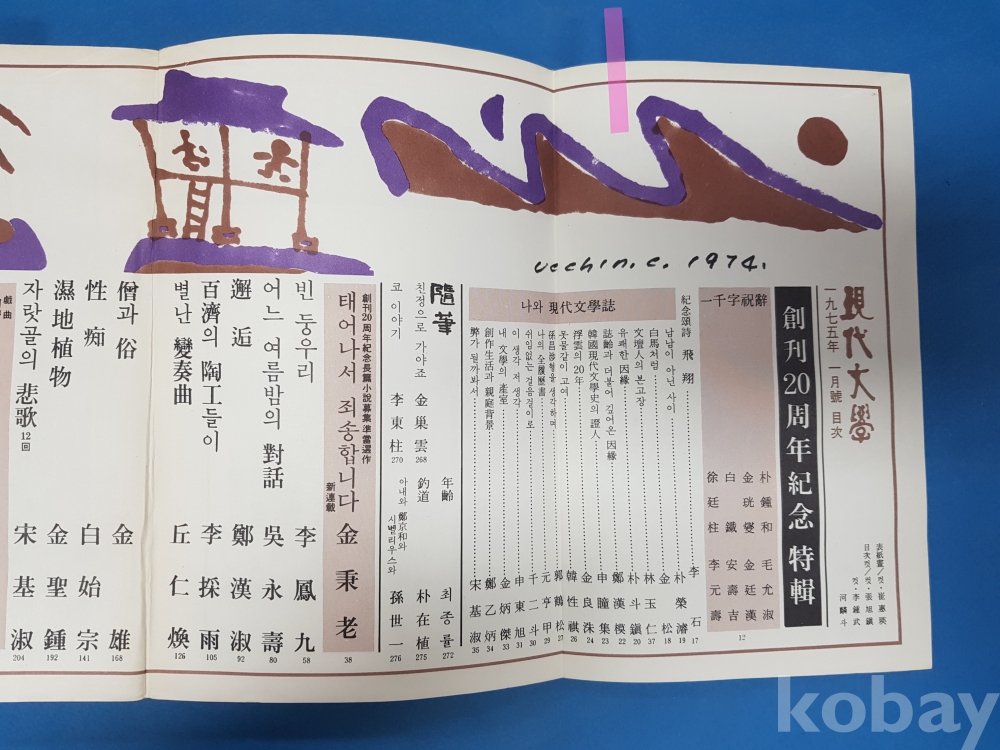 現代文學
一九七五年 一月號 目次
表紙畫/컷·崔惠瑛
目次컷/컷·張旭鎭
컷·李鍾武
河麟斗
創刊20周年紀念 特輯
一千字祝辭
朴鍾和 毛允淑
金珖燮 金廷漢
白鐵 安壽吉
徐廷柱 李元壽
12
紀念頌詩 飛翔 李石 17
나와 現代文學誌
남남이 아닌 사이 朴榮濬 19
白馬처럼 金松 18
文壇人의 본고장 林玉仁 37
유쾌한 因緣 朴斗鎭 20
誌齡과 더불어 깊어온 因緣 鄭漢模 22
韓國現代文學史의 證人 申瞳集 23
浮雲의 20年 金良洙 24
못물같이 고여 韓性祺 26
孫昌涉형을 생각하며 郭鶴松 27
나의 全履歷書 元亨甲 29
쉬임없는 걸음걸이로 千二斗 30
이 생각 저 생각 申東旭 31
내 文學의 產室 金炳傑 33
創作生活과 親庭背景 鄭乙炳 34
弊가 될까봐서 宋基淑 35
隨筆
친정으로 가야죠 金巢雲 268
코 이야기 李東柱 270
年齡 최종률 272
釣道 朴在植 275
아내와 鄭京和와
시벨리우스와 孫世一 276
創刊20周年紀念長篇小說募集準當選作
태어나서 죄송합니다 金秉老 38
新連載
빈 둥우리 李鳳九 58
어느 여름밤의 對話 吳永壽 80
邂逅 鄭漢淑 92
百濟의 陶工들이 李採雨 105
별난 變奏曲 丘仁煥 126
僧과 俗 金雄 168
性痴 白始宗 141
濕地植物 金聖鍾 192
자랏골의 悲歌 12回 宋基淑 204
戱曲
ucchin.c. 1974.
kobay